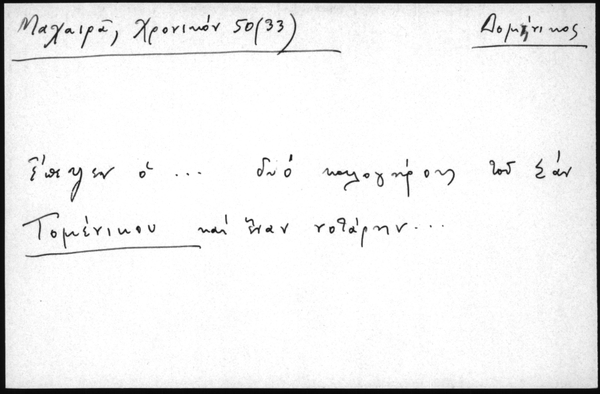 Μαχαιρᾶ, Χρονικόν 50(33)
Δομένικος
Ἔπεψεν ὁ ... δυό καλογήρους τοῦ Σάν
Τομένικου καί ἕναν νοτάρην...